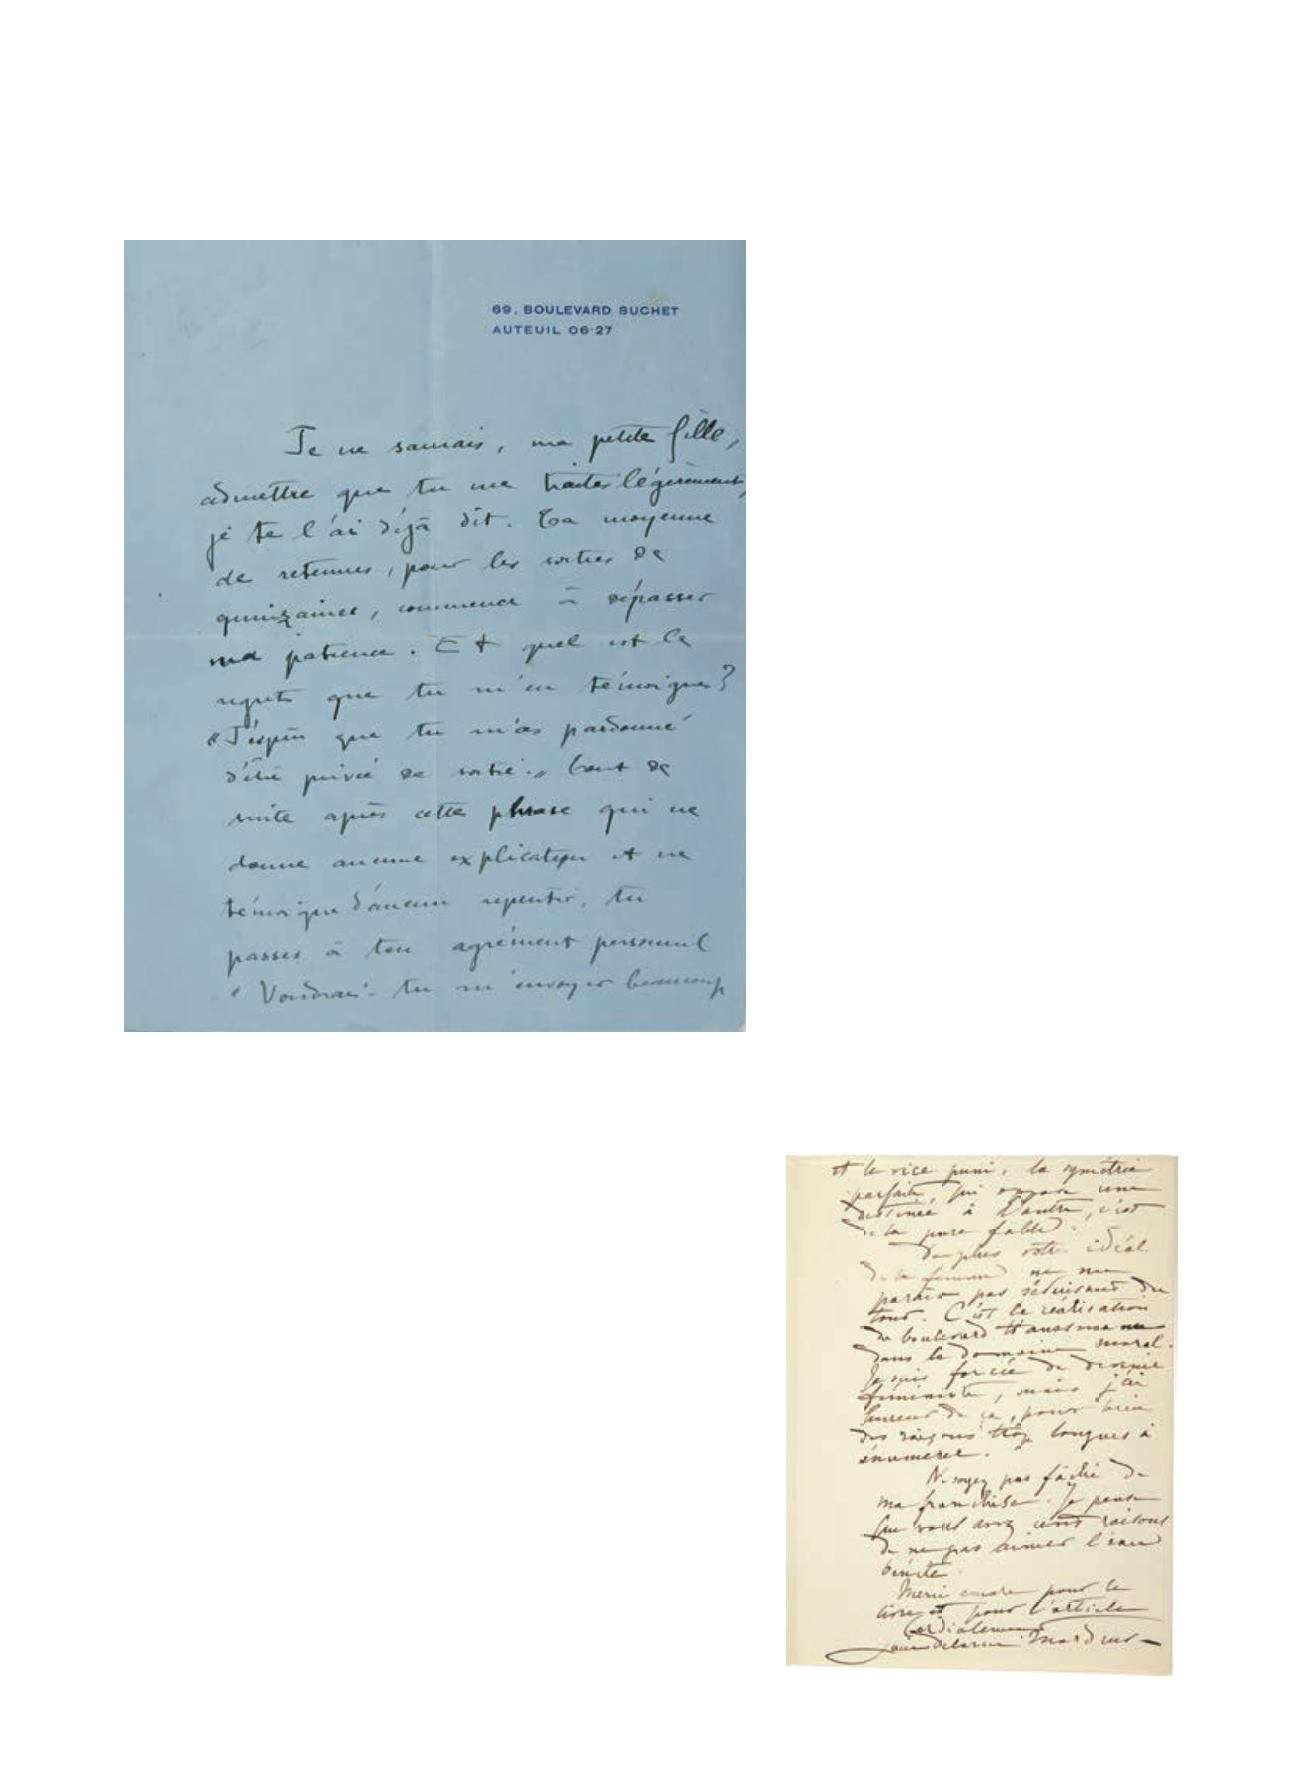 69, BOULEVARD SUCHET
AUTEUIL 06-27
Je ne saurais, ma petite fille,
admettre que tu me traites légèrement,
je te l'ai déjà dit. Ta moyenne
de retenues, pour les sorties de
quinzaines, commence à dépasser
ma patience. Et quel est le
regret que tu m'en témoignes ?
« J'espère que tu m'as pardonné
d'être privée de sortie. » Tout de
suite après cette phrase qui ne
donne aucune explication et ne
témoigne d'aucun repentir, tu
passes à ton agrément personnel
" Voudrais-tu m'envoyer beaucoup
et le vice puni, la symétrie
parfaite, qui oppose une
destinée à l'autre, c'est
de la pure fable.
De plus votre idéal
de la femme ne me
paraît pas séduisant du
tout. C'est la réalisation
du boulevard Haussmann
dans le domaine moral.
Je suis forcée de devenir
féministe, mais j'ai
horreur de ça, pour bien
des raisons trop longues à
énumérer.
Ne soyez pas fâché de
ma franchise. Je pense
que vous avez cent raisons
de ne pas aimer l'eau
bénite.
Merci encore pour le
livre et pour l'article
Cordialement
Lucie Delarue Mardrus